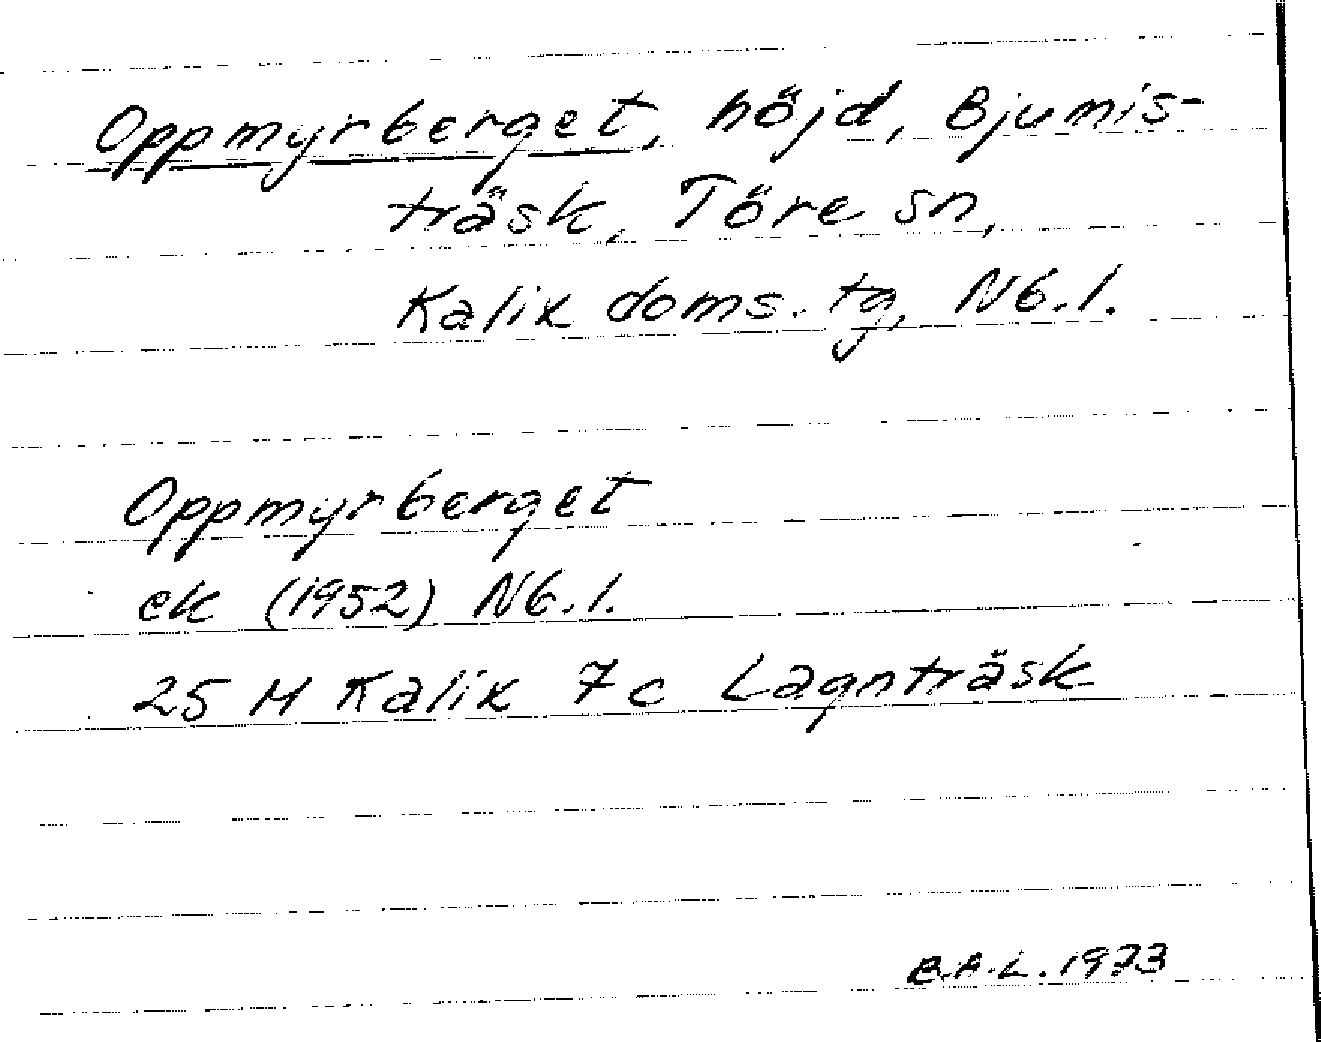 Oppmyrberget, höjd, Bjumis-
träsk, Töre sn,
Kalix doms. tg, N6.1.
Oppmyrberget
ek (1952) N6.1.
25 M Kalix 7c Lagnträsk
B.A.L. 1973